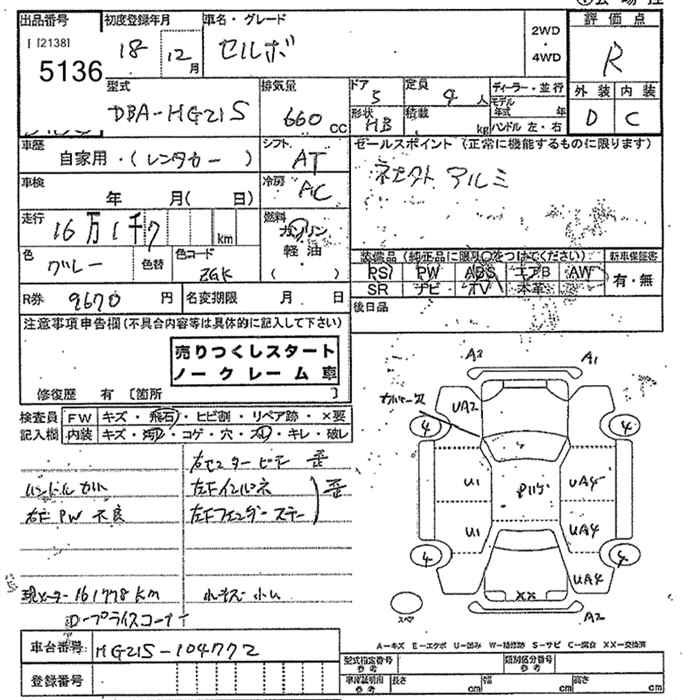 出品番号 初度登録年月 車名・グレード 評価点
[ [2138] 18 年 12月 セルボ 2WD・4WD R
5136
外装 内装
D C
型式 DBA-HG21S 排気量 660 cc ドア 5 定員 4 人 ディーラー・並行
形状 HB 積載 kg モデル年式 年 ハンドル 左・右
車歴 自家用・(レンタカー) シフト AT セールスポイント(正常に機能するものに限ります)
車検 年 月( 日) 冷房 AC
アルミ
走行 16万1千 km 燃料 ガソリン 軽油 ( )
色 グレー 色替 色コード ZGK
装備品(純正品に限り○をつけてください) 新車保証書
PS PW ABS エアB AW 有・無
SR ナビ TV 本革
R券 9670 円 名変期限 月 日 後日品
注意事項申告欄(不具合内容等は具体的に記入して下さい)
売りつくしスタート
ノークレーム車
修復歴 有 [箇所 ]
検査員 FW キズ・飛石・ヒビ割・リペア跡・×要
記入欄 内装 キズ・汚れ・コゲ・穴・スレ・キレ・破し
右センターピラー 歪
ハンドル
左Fインパネ 歪
右F PW 不良 左Fフェンダーステー
現メーター 161778km
ロープライスコーナー
A3 A1
UA2
4 4
U1 UA4
U1 UA4
4 4
UA4
XX
スペア A2
A-キズ E-エクボ U-凹み W-補修跡 S-サビ C-腐食 XX-交換済
車台番号 HG21S-104772
登録番号
型式指定番号 参考 類別区分番号 参考
車庫証明用 参考 長さ cm 幅 cm 高さ cm